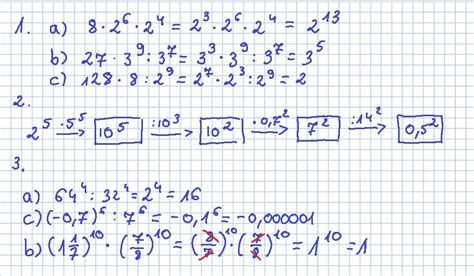 1. a) 8 · 2⁶ · 2⁴ = 2³ · 2⁶ · 2⁴ = 2¹³
b) 27 · 3⁹ : 3⁷ = 3³ · 3⁹ : 3⁷ = 3⁵
c) 128 · 8 : 2⁹ = 2⁷ · 2³ : 2⁹ = 2
2.
2⁵ ·5⁵→ 10⁵ :10³→ 10² ·0,7²→ 7² :14²→ 0,5²
3.
a) 64⁴ : 32⁴ = 2⁴ = 16
c) (-0,7)⁶ : 7⁶ = -0,1⁶ = -0,000001
b) (1 1/7)¹⁰ · (7/8)¹⁰ = (8/7)¹⁰ · (7/8)¹⁰ = 1¹⁰ = 1